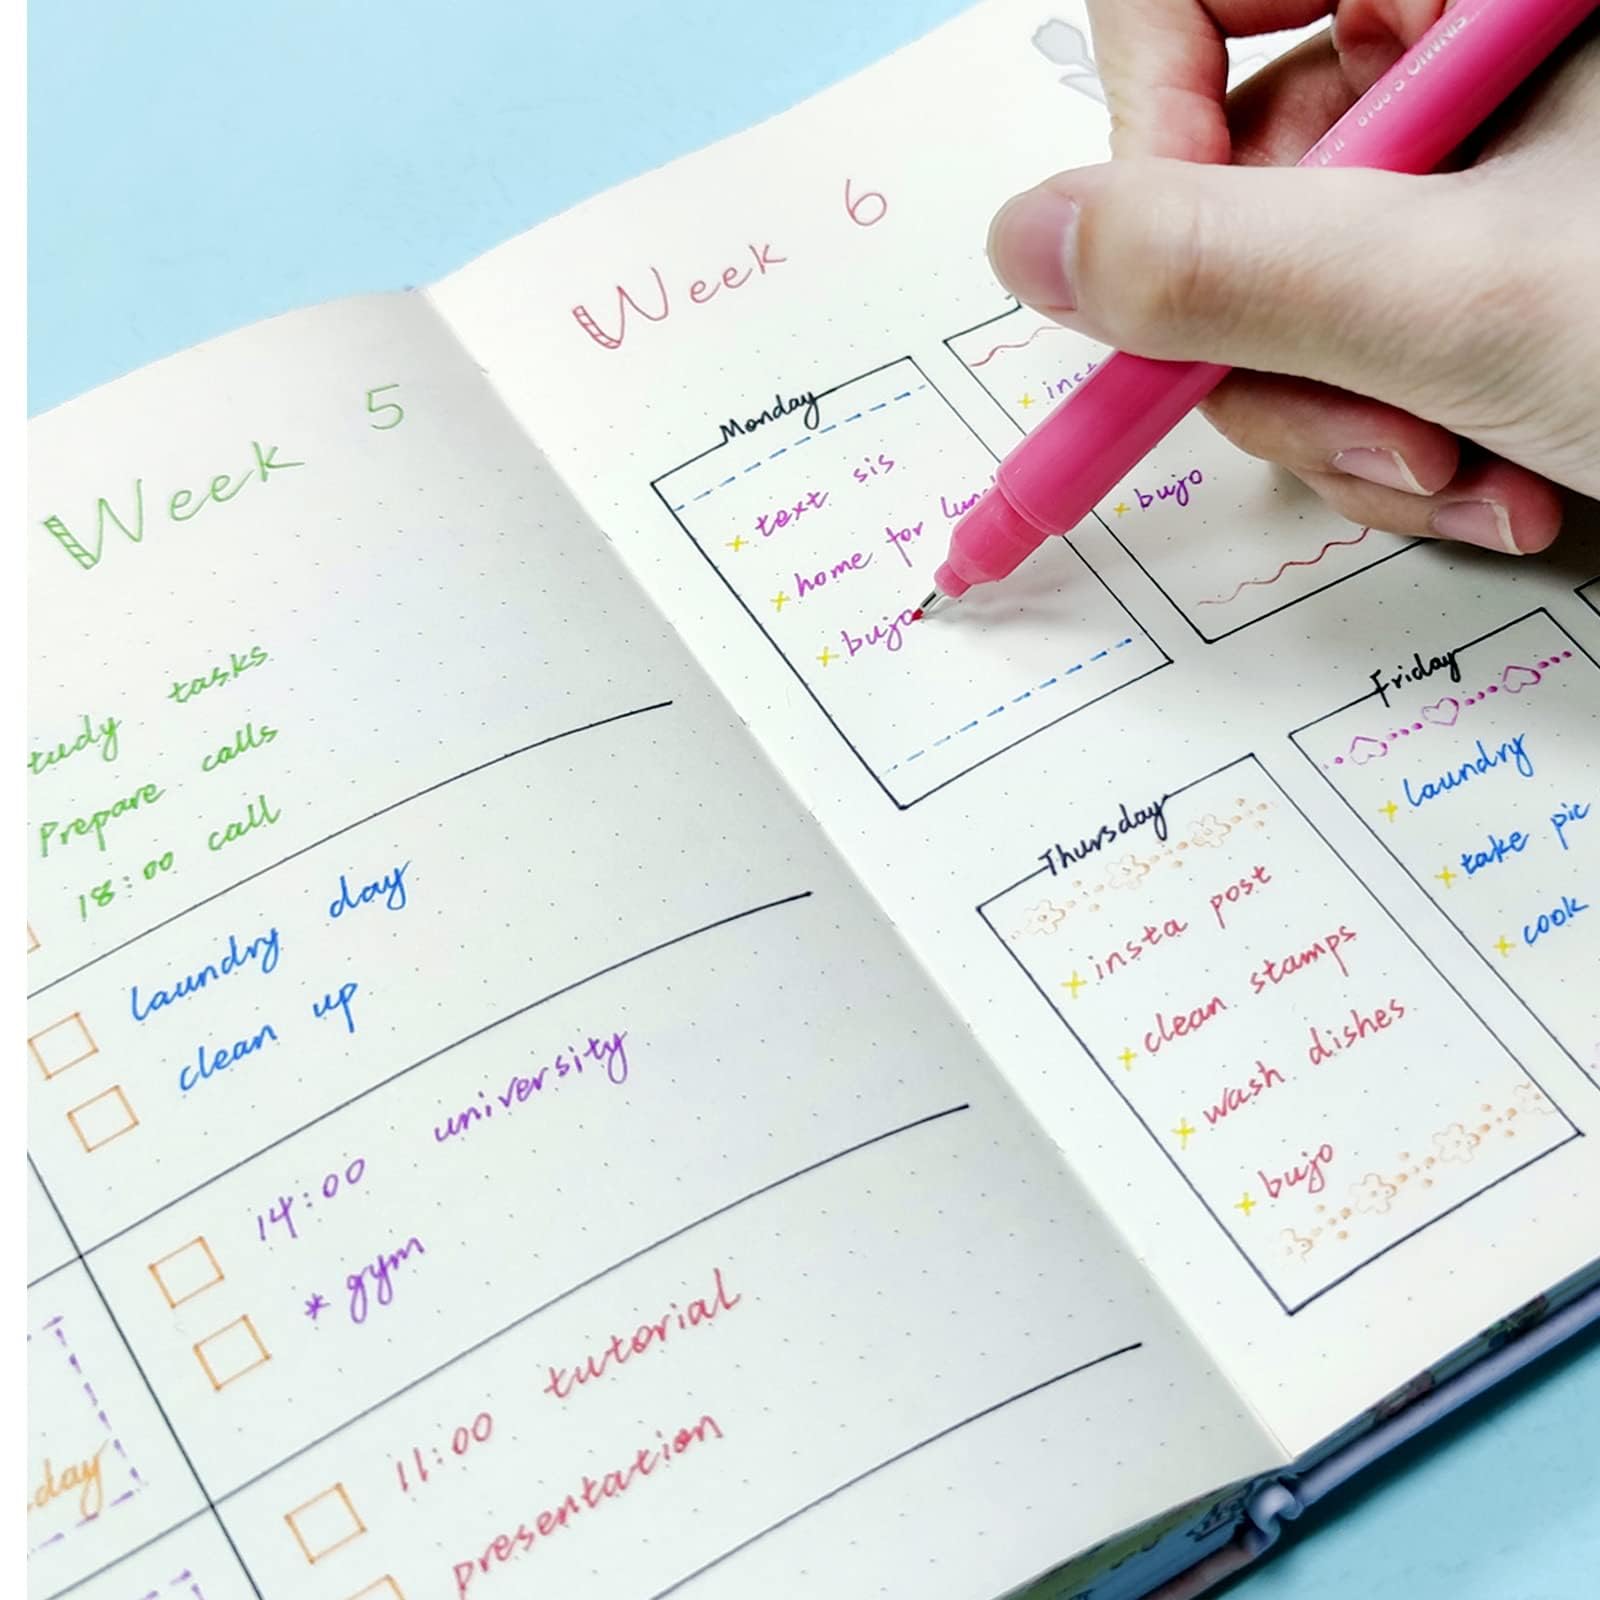 Week 5
tasks
Prepare calls
18:00 call
laundry day
clean up
14:00 university
* gym
11:00 tutorial
presentation
day
Week 6
Monday
+ text sis
+ home for
+ bujo
+
+ bujo
Thursday
+ insta post
+ clean stamps
+ wash dishes
+ bujo
Friday
+ laundry
+ take pic
+ cook